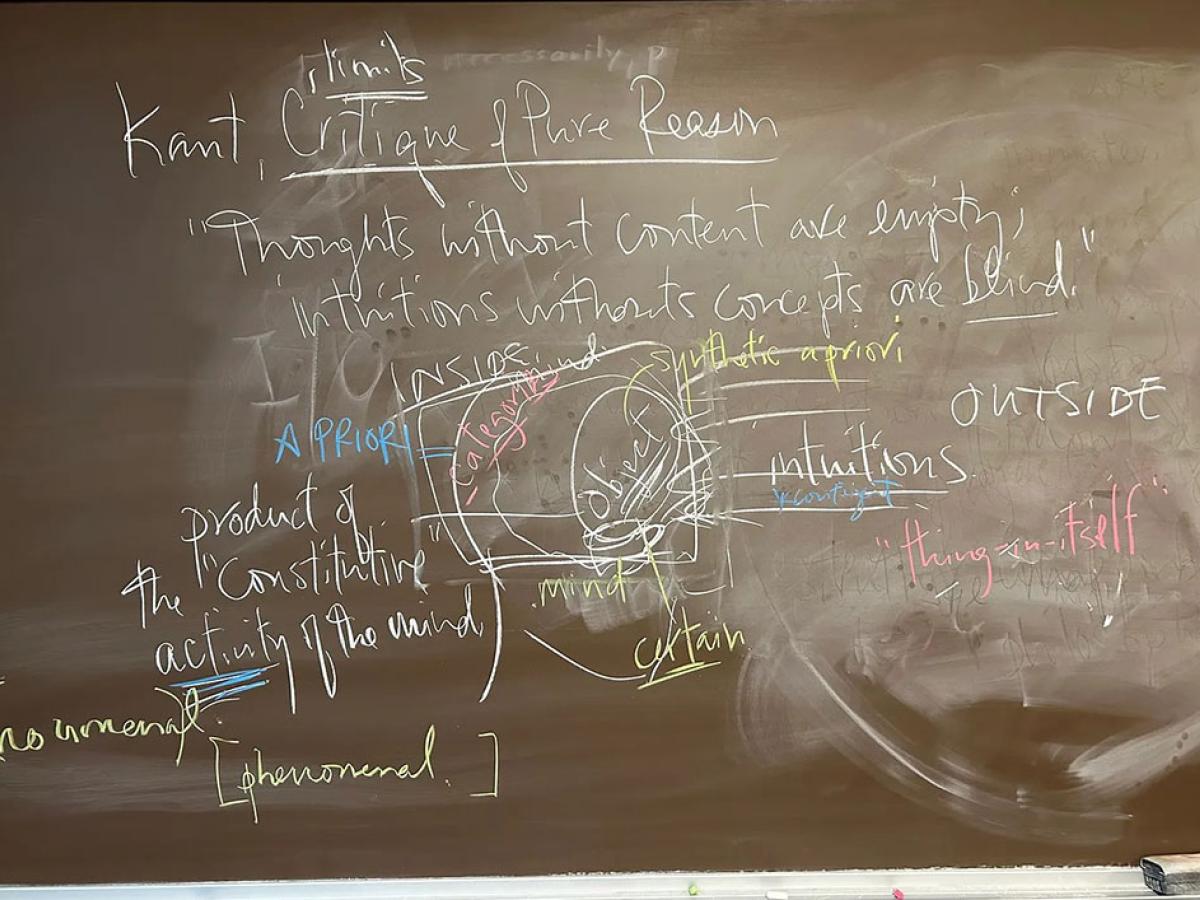 limits
necessarily, P
Kant, Critique of Pure Reason
"Thoughts without content are empty;
intuitions withouts concepts are blind."
INSIDE mind
synthetic a priori
categories
OUTSIDE
A PRIORI
object
intuitions
"thing-in-itself"
product of
the "constitutive"
activity of the mind,
mind
certain
noumenal
[phenomenal.]